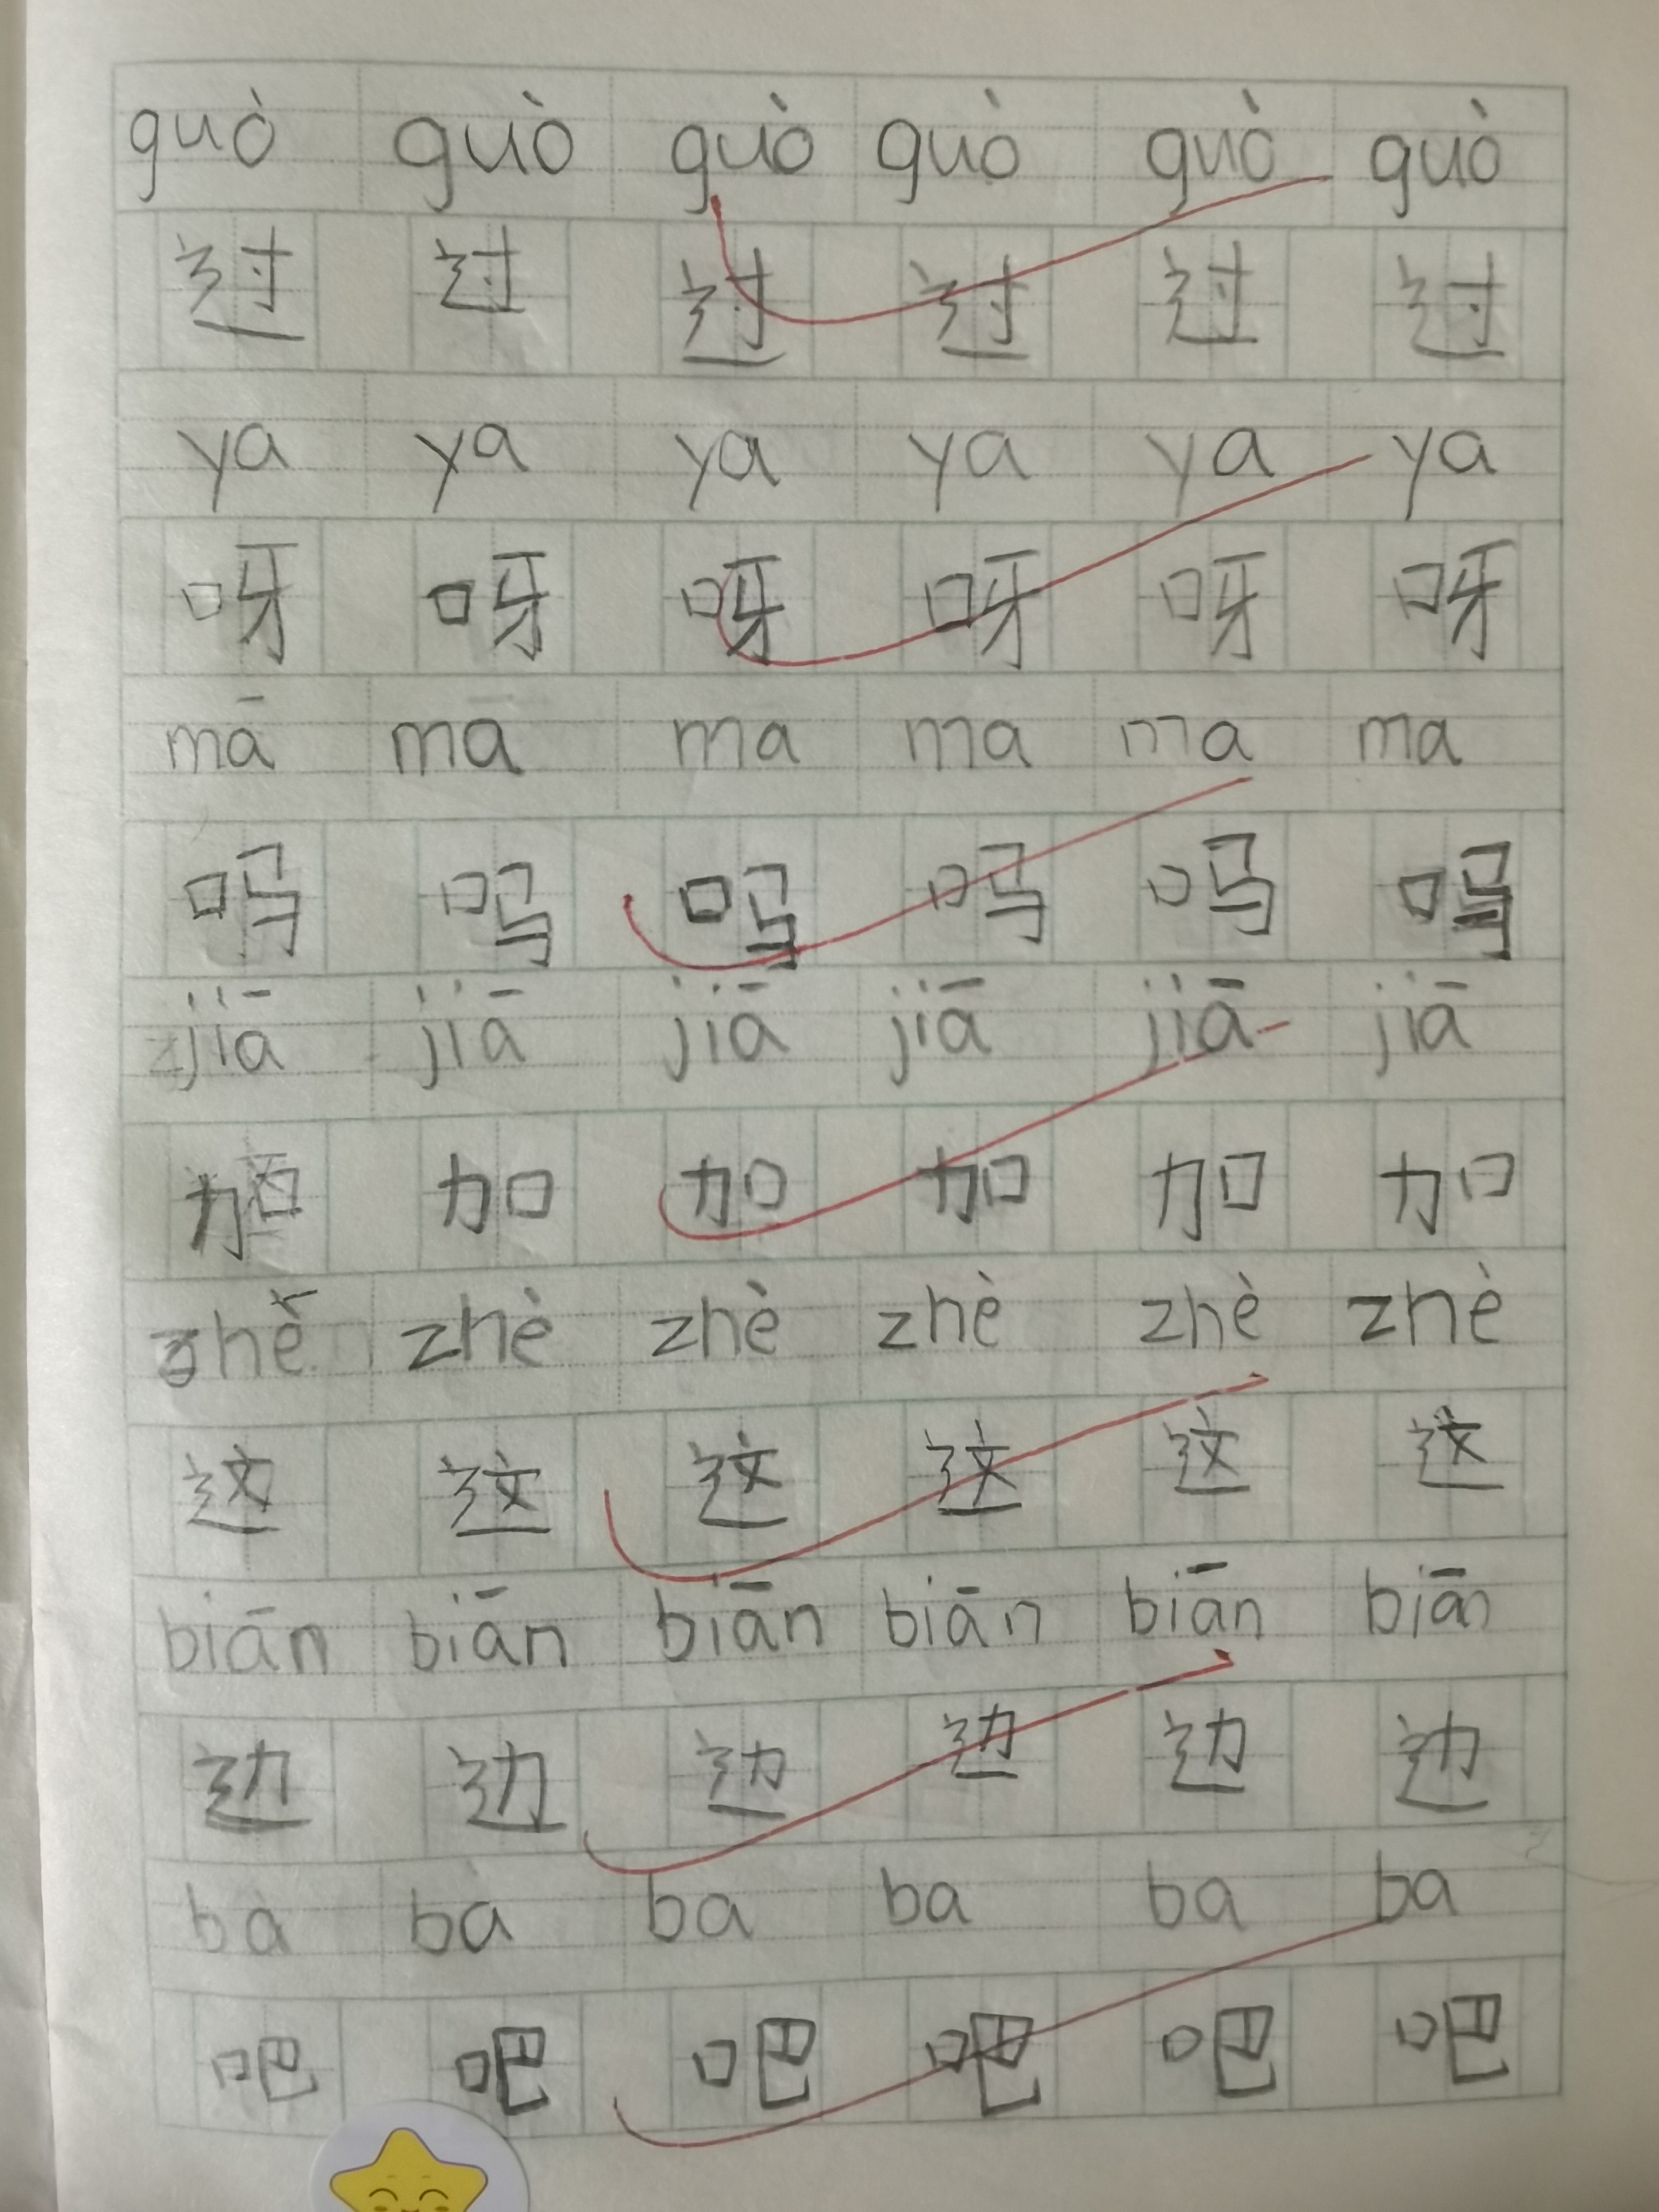 guò guò guò guò guò guò
过 过 过 过 过 过
ya ya ya ya ya ya
呀 呀 呀 呀 呀 呀
mā mā ma ma ma ma
吗 吗 吗 吗 吗 吗
jiā jiā jiā jiā jiā jiā
加 加 加 加 加 加
zhè zhè zhè zhè zhè
这 这 这 这 这 这
biān biān biān biān biān biān
边 边 边 边 边 边
ba ba ba ba ba ba
吧 吧 吧 吧 吧 吧